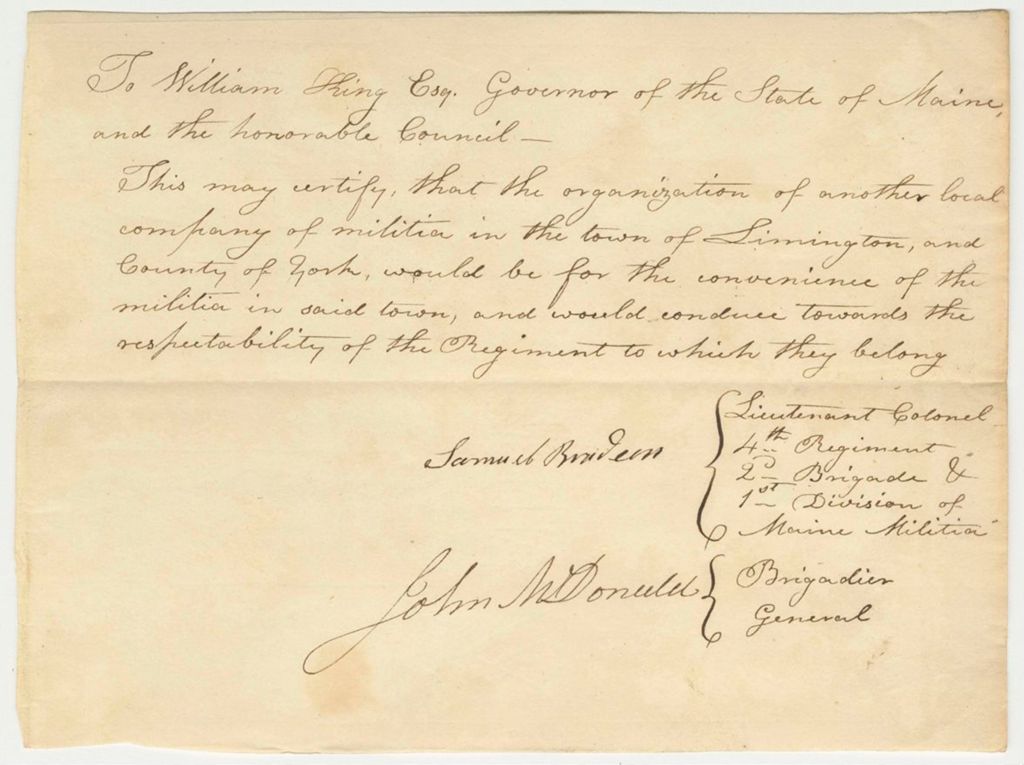 To William King Esq. Governor of the State of Maine,
and the honorable Council —
This may certify, that the organization of another local
company of militia in the town of Limington, and
County of York, would be for the convenience of the
militia in said town, and would conduce towards the
respectability of the Regiment to which they belong
Samuel Bradeen
Lieutenant Colonel
4th Regiment
2d Brigade &
1st Division of
Maine Militia
John McDonald
Brigadier
General